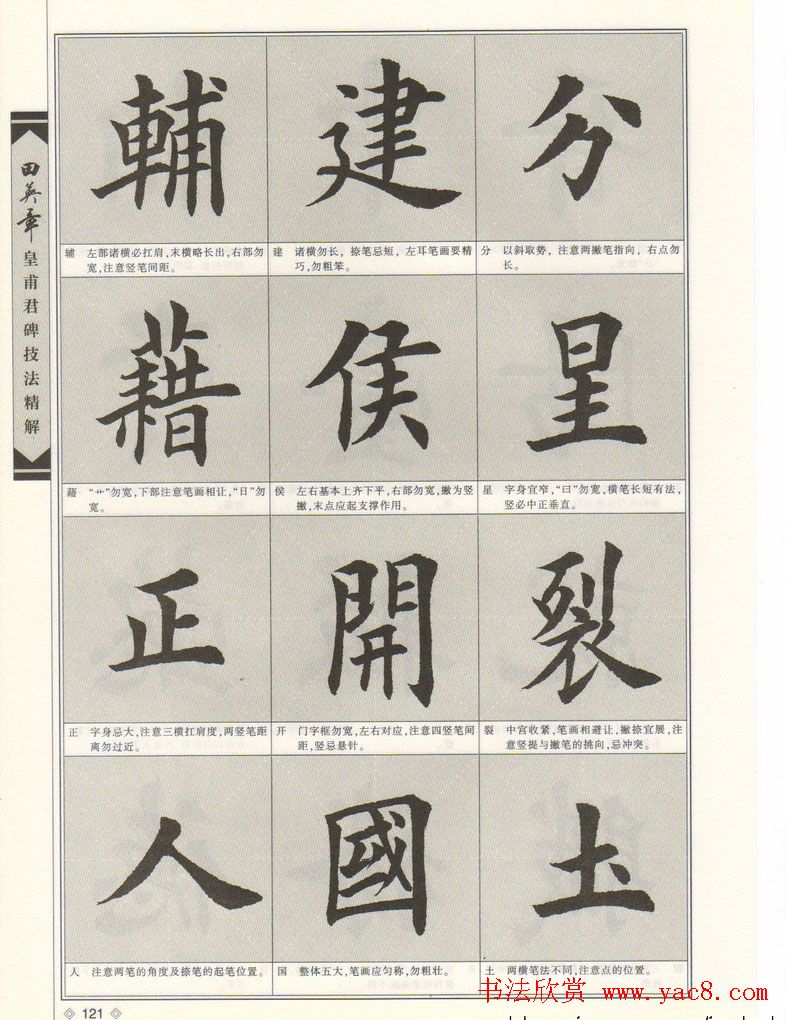 田英章
皇甫君碑技法精解
輔 建 分
辅 左部诸横必扛肩,末横略长出,右部勿
宽,注意竖笔间距。
建 诸横勿长,捺笔忌短,左耳笔画要精
巧,勿粗笨。
分 以斜取势,注意两撇笔指向,右点勿
长。
藉 侯 星
藉 “艹”勿宽,下部注意笔画相让,“日”勿
宽。
侯 左右基本上齐下平,右部勿宽,撇为竖
撇,末点应起支撑作用。
星 字身宜窄,“曰”勿宽,横笔长短有法,
竖必中正垂直。
正 開 裂
正 字身忌大,注意三横扛肩度,两竖笔距
离勿过近。
开 门字框勿宽,左右对应,注意四竖笔间
距,竖忌悬针。
裂 中宫收紧,笔画相避让,撇捺宜展,注
意竖提与撇笔的挑向,忌冲突。
人 國 土
人 注意两笔的角度及捺笔的起笔位置。
国 整体五大,笔画应匀称,勿粗壮。
土 两横笔法不同,注意点的位置。
书法欣赏 www.yac8.com
121